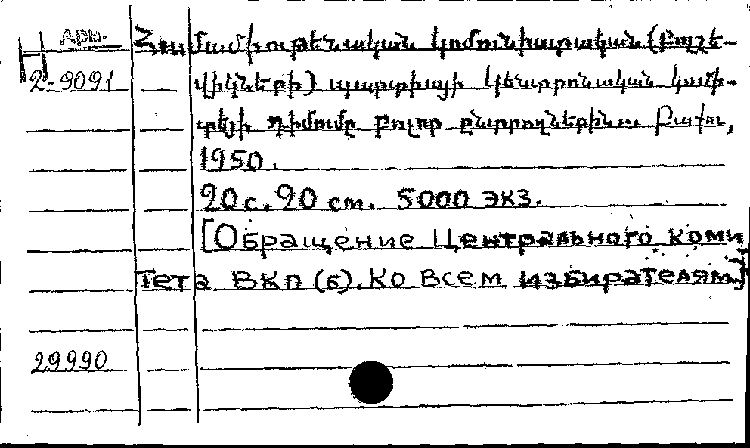 Арм.
Н
2-9091
Համամիութենական կոմունիստական (բոլշե-
վիկների) պարտիայի կենտրոնական կոմի-
տեյի դիմումը բոլոր ընտրողներին։ Բաքու,
1950.
20 с. 20 cm. 5000 экз.
[Обращение Центрального коми
тета ВКП(б). Ко всем избирателям]
29990